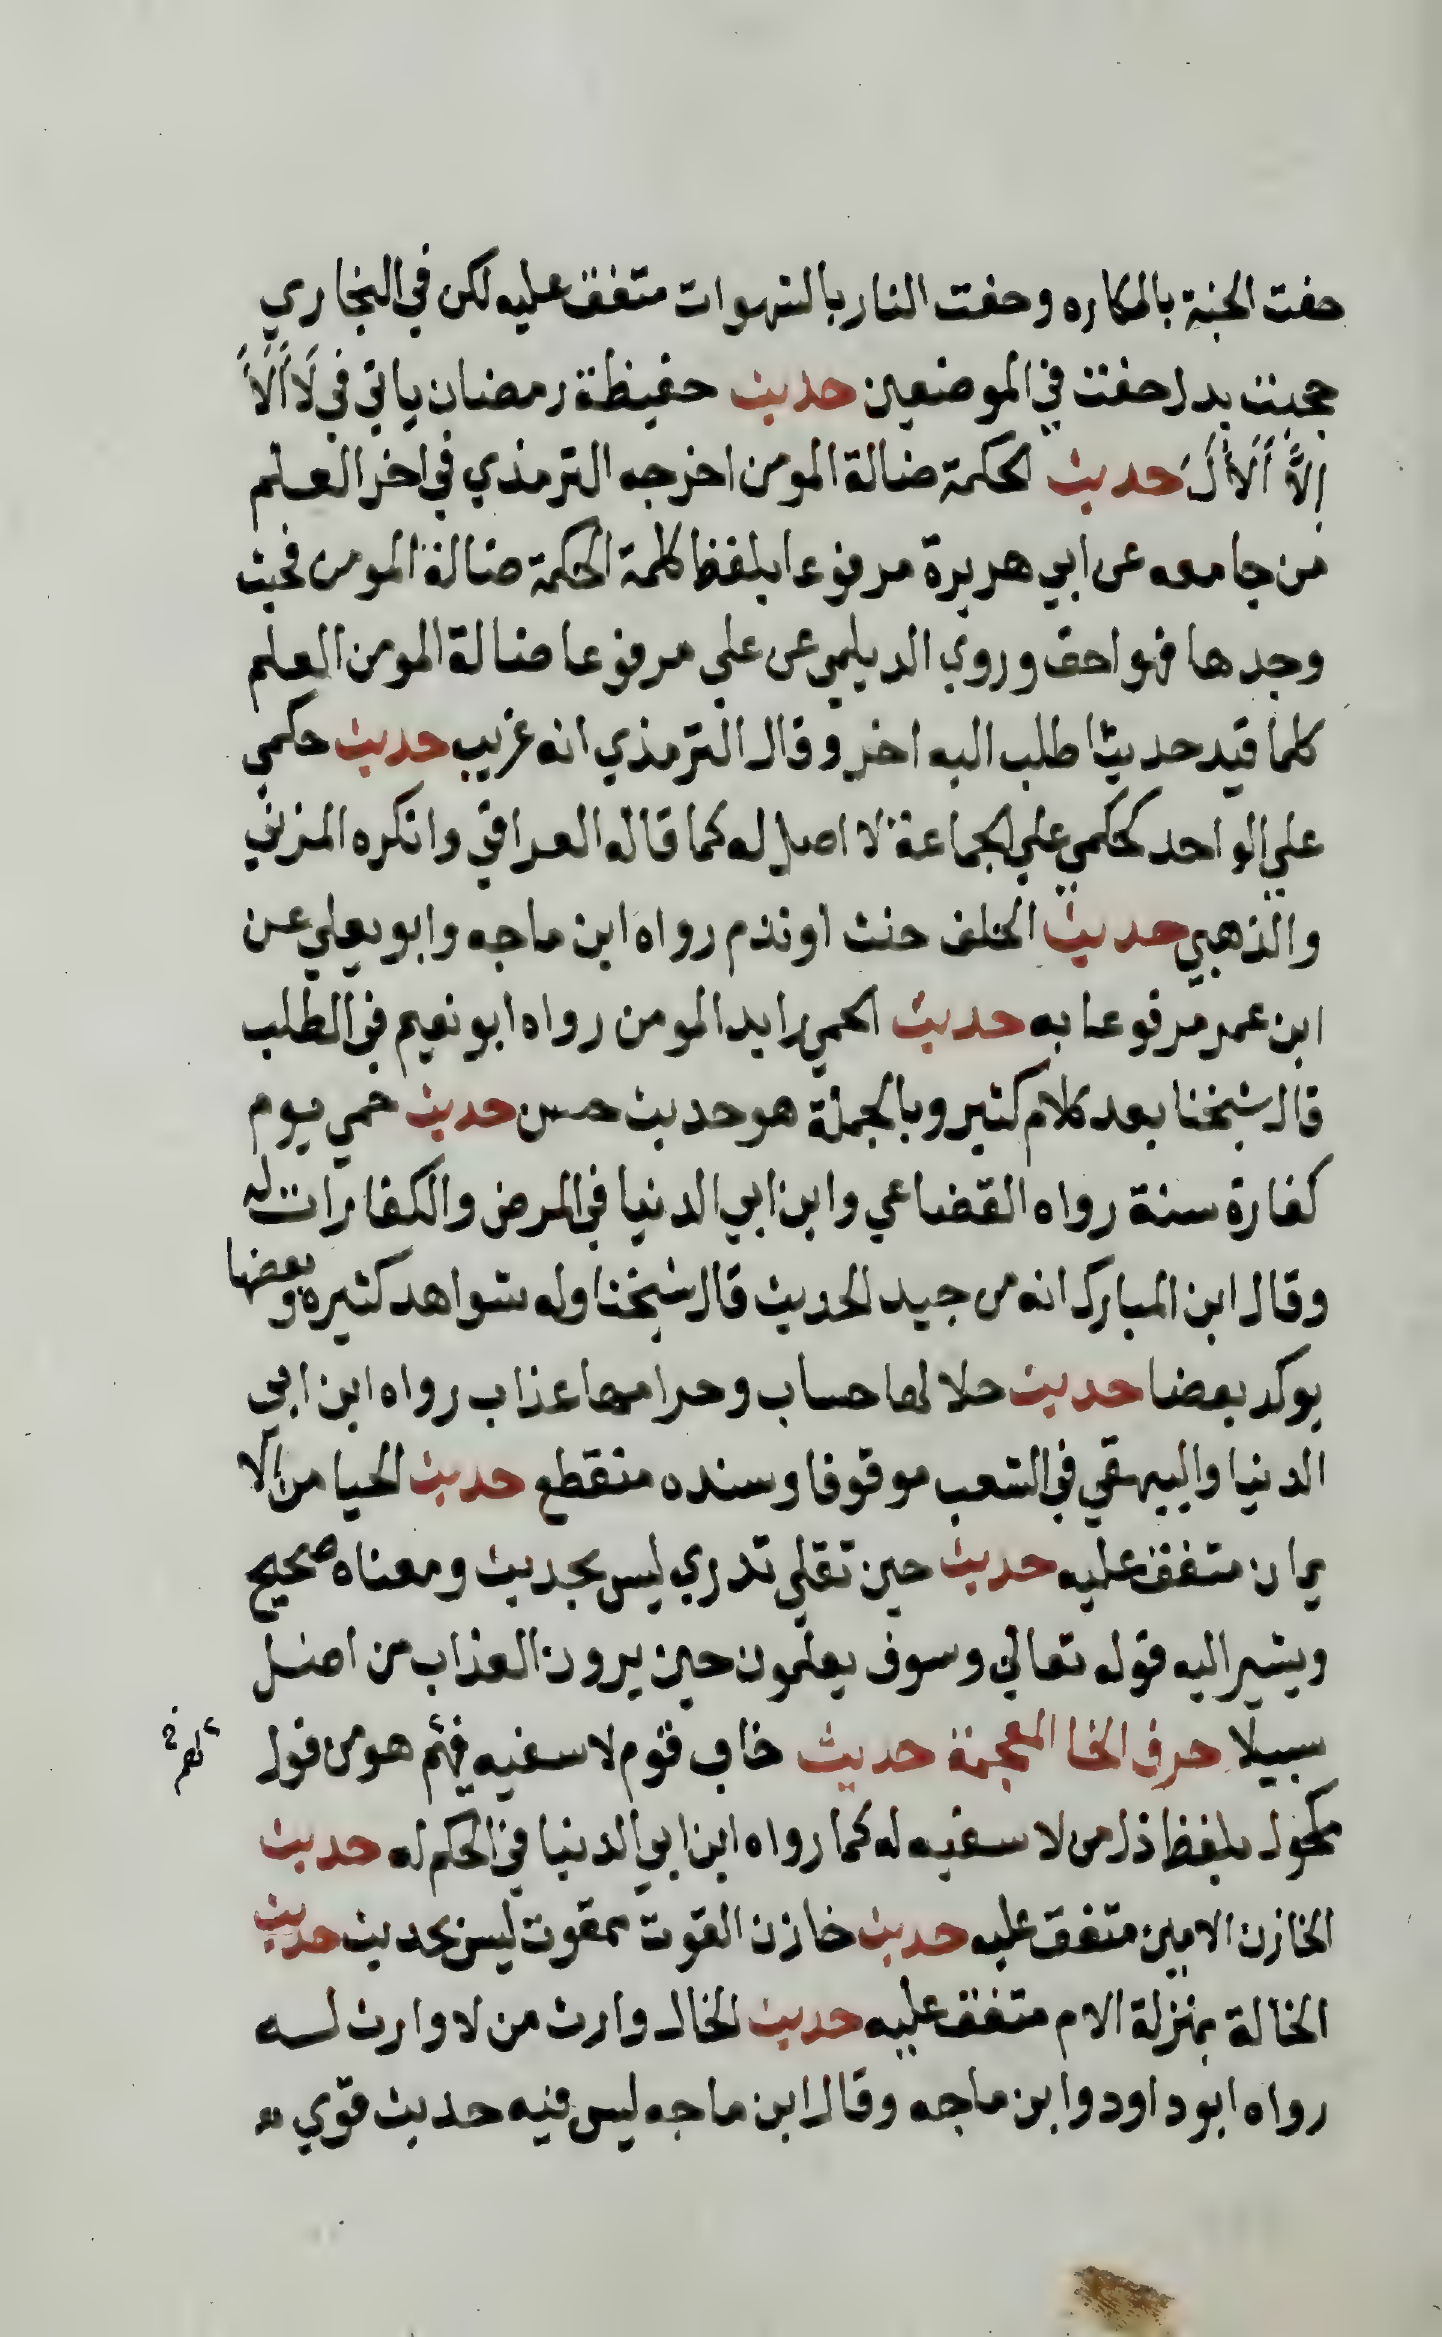 حفت الجنة بالمكاره وحفت النار بالشهوات متفق عليه لكن في البخاري
حجبت بدل حفت في الموضعين حديث حفيظة رمضان ياتي في لَا اَلَاَ
اِلاَّ اَلَاَلَ حديث الحكمة ضالة المومن اخرجه الترمذي في اخر العلم
من جامعه عن ابي هريرة مرفوعا بلفظ كلمة الحكمة ضالة المومن فحيث
وجدها فهو احق وروي الديلمي عن علي مرفوعا ضالة المومن العلم
كلما قيد حديثا طلب اليه اخر وقال الترمذي انه غريب حديث حكمي
علي الواحد كحكمي علي الجماعة لا اصل له كما قاله العراقي وانكره المزني
والذهبي حديث الحلف حنث او ندم رواه ابن ماجه وابو يعلي عن
ابن عمر مرفوعا به حديث الحمي رايد المومن رواه ابو نعيم في الطب
قال شيخنا بعد كلام كثير وبالجملة هو حديث حسن حديث حمي يوم
كفارة سنة رواه القضاعي وابن ابي الدنيا في المرض والكفارات له
وقال ابن المبارك انه من جيد الحديث قال شيخنا وله شواهد كثيره وبعضها
يوكد بعضا حديث حلالها حساب وحرامها عذاب رواه ابن ابي
الدنيا والبيهقي في الشعب موقوفا وسنده منقطع حديث الحيا من الا
يمان متفق عليه حديث حين تقلي تدري ليس بحديث ومعناه صحيح
ويشير اليه قوله تعالي وسوف يعلمون حين يرون العذاب من اضل
سبيلا حرف الخا المعجمة حديث خاب قوم لا سفيه فيهم هو من قول
مكحول بلفظ ذل من لا سفيه له كما رواه ابن ابي الدنيا في الحكم له حديث
الخازن الامين متفق عليه حديث خازن القوت ممقوت ليس بحديث حديث
الخالة بمنزلة الام متفق عليه حديث الخال وارث من لا وارث له
رواه ابو داود وابن ماجه وقال ابن ماجه ليس فيه حديث قوي